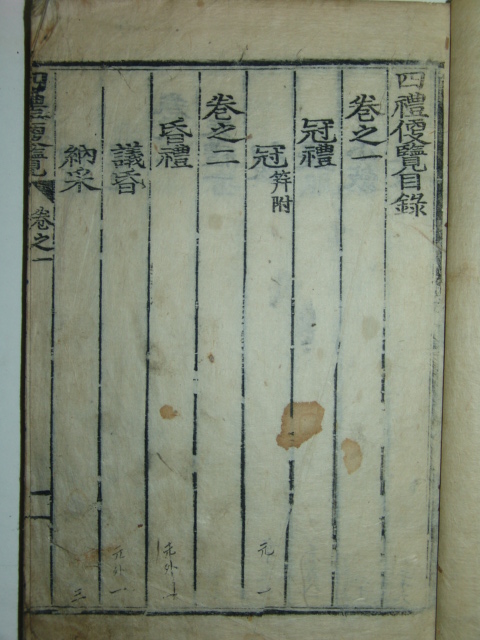 四禮便覽目錄
卷之一
冠禮
冠 笄附
元 一
卷之二
昏禮
議昏
一
納采
三
四禮便覽 卷之一